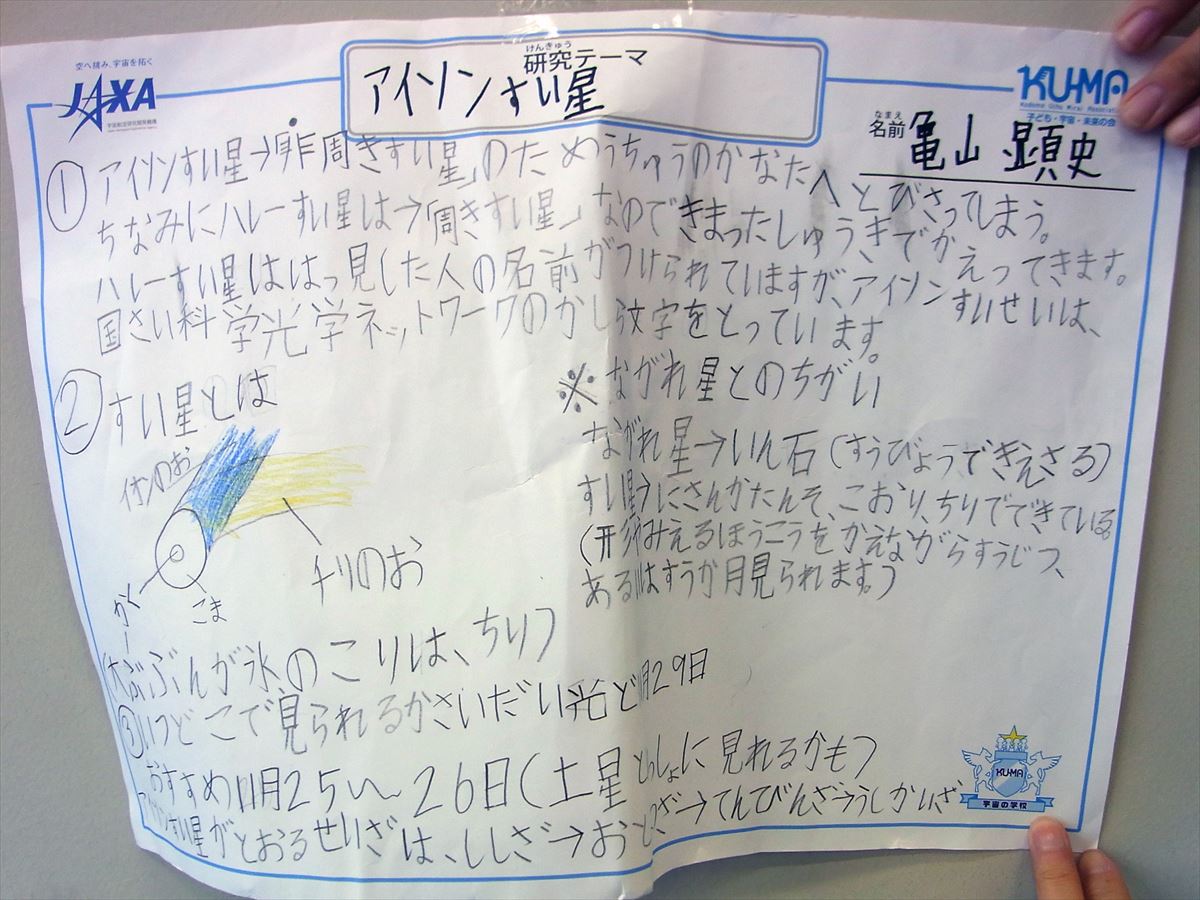 空へ挑み、宇宙を拓く
JAXA
宇宙航空研究開発機構
けんきゅう
研究テーマ
アイソンすい星
KU-MA
Kodomo Uchu Mirai Association
子ども・宇宙・未来の会
なまえ
名前 亀山 顕史
① アイソンすい星→「非周きすい星」のため うちゅうのかなたへとびさってしまう。
ちなみにハレーすい星は→「周きすい星」なのできまったしゅうきでかえってきます。
ハレーすい星ははっ見した人の名前がつけられていますが、アイソンすいせいは、
国さい科学光学ネットワークのかしら文字をとっています。
② すい星とは
イオンのお
チリのお
こま
かく
※ながれ星とのちがい
ながれ星→いん石(すうびょうできえさる)
すい星→にさんかたんそ、こおり、ちりでできている。
みえるほうこうをかえながらすうじつ、
あるいはすうか月見られます。)
(大ぶぶんが氷のこりは、ちり)
③いつどこで見られるかさいだい光ど11月29日
おすすめ11月25〜26日(土星といっしょに見れるかも)
アイソンすい星がとおるせいざは、ししざ→おとめざ→てんびんざ→うしかいざ
KU-MA
宇宙の学校